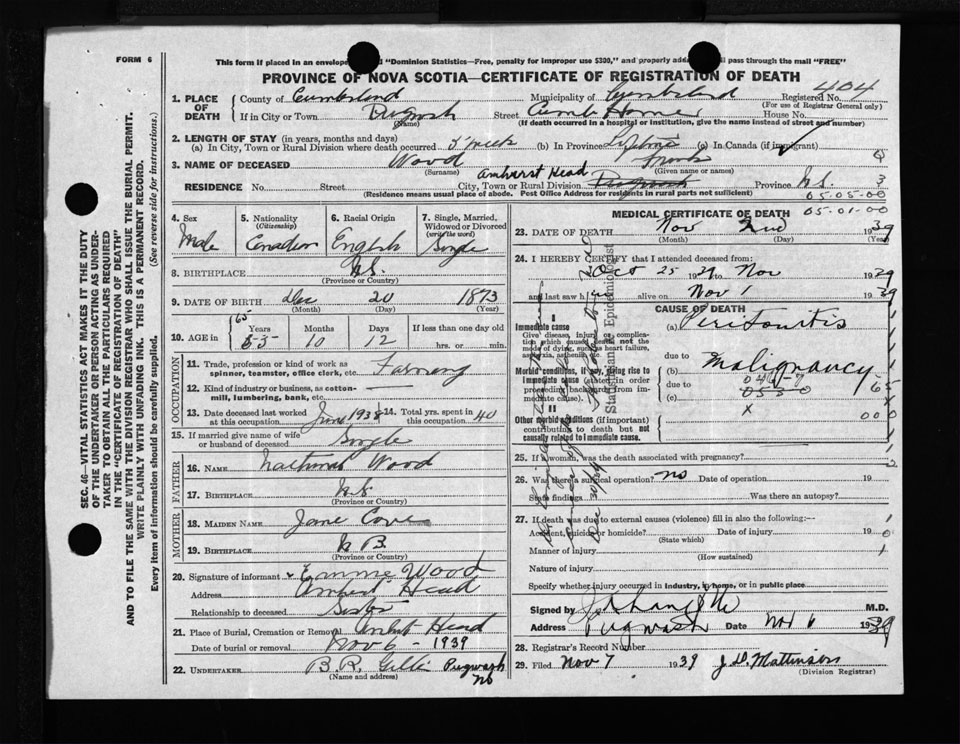 FORM 6
This form if placed in an envelope "Dominion Statistics—Free, penalty for improper use $300," and properly pass through the mail "FREE"
PROVINCE OF NOVA SCOTIA—CERTIFICATE OF REGISTRATION OF DEATH
1. PLACE OF DEATH
County of Cumberland Municipality of Cumberland Registered No. 404
(For use of Registrar General only)
If in City or Town Pugwash Street Home House No.
(Name) (If death occurred in a hospital or institution, give the name instead of street and number)
2. LENGTH OF STAY (in years, months and days)
(a) In City, Town or Rural Division where death occurred (b) In Province Lifetime (c) In Canada (if immigrant)
3. NAME OF DECEASED Wood Frank
(Surname) (Given name or names)
RESIDENCE No. Street City, Town or Rural Division Amherst Head Pugwash Province N.S.
(Residence means usual place of abode. Post Office Address for residents in rural parts not sufficient)
05-05-00
05-01-00
SEC. 46—VITAL STATISTICS ACT MAKES IT THE DUTY OF THE UNDERTAKER OR PERSON ACTING AS UNDERTAKER TO OBTAIN ALL THE PARTICULARS REQUIRED IN THE "CERTIFICATE OF REGISTRATION OF DEATH" AND TO FILE THE SAME WITH THE DIVISION REGISTRAR WHO SHALL ISSUE THE BURIAL PERMIT. WRITE PLAINLY WITH UNFADING INK. THIS IS A PERMANENT RECORD.
Every item of information should be carefully supplied. (See reverse side for instructions.)
4. Sex Male
5. Nationality (Citizenship) Canadian
6. Racial Origin English
7. Single, Married, Widowed or Divorced (write the word) Single
8. BIRTHPLACE N.S.
(Province or Country)
9. DATE OF BIRTH Dec 20 1873
(Month) (Day) (Year)
10. AGE in Years 65 Months 10 Days 12 If less than one day old hrs. or min.
OCCUPATION
11. Trade, profession or kind of work as spinner, teamster, office clerk, etc. Farming
12. Kind of industry or business, as cotton-mill, lumbering, bank, etc.
13. Date deceased last worked at this occupation June 1938
14. Total yrs. spent in this occupation 40
15. If married give name of wife or husband of deceased Single
FATHER
16. NAME Nathaniel Wood
17. BIRTHPLACE N.S.
(Province or Country)
MOTHER
18. MAIDEN NAME Jane Cove
19. BIRTHPLACE N B.
(Province or Country)
20. Signature of informant Wood
Address Amherst Head
Relationship to deceased Sister
21. Place of Burial, Cremation or Removal Amherst Head
Date of burial or removal Nov 6 - 1939
22. UNDERTAKER B.R. Pugwash NS
(Name and address)
MEDICAL CERTIFICATE OF DEATH
23. DATE OF DEATH Nov 2nd 1939
(Month) (Day) (Year)
24. I HEREBY CERTIFY that I attended deceased from:
Oct 25 1939 to Nov 1939
and last saw h alive on Nov 1 1939
CAUSE OF DEATH
I
Immediate cause (a) Peritonitis
Give disease, injury or complication which caused death not the mode of dying, such as heart failure, asphyxia, asthenia, etc.
due to
Morbid conditions, if any, giving rise to immediate cause (b) Malignancy
due to
(c)
055 0
II
Other morbid conditions (if important) contributing to death but not causally related to immediate cause.
Statistician & Epidemiologist
25. If a woman, was the death associated with pregnancy?
26. Was there a surgical operation? no Date of operation 19
State findings Was there an autopsy?
27. If death was due to external causes (violence) fill in also the following:—
Accident, suicide or homicide? Date of injury 19
(State which)
Manner of injury
(How sustained)
Nature of injury
Specify whether injury occurred in industry, in home, or in public place
Signed by M.D.
Address Pugwash Date Nov 6 1939
28. Registrar's Record Number
29. Filed Nov 7 1939 J.D. Mattinson
(Division Registrar)